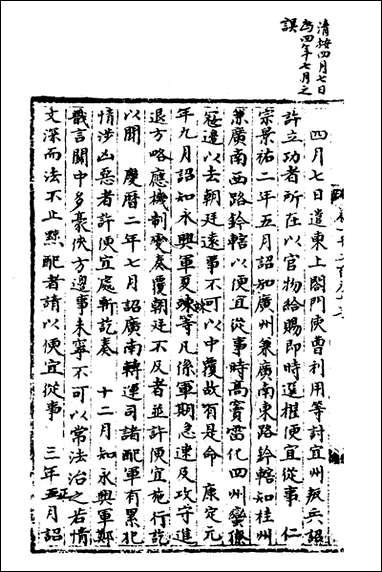 清按四月七日
為四年七月之
誤
四月七日遣東上閤門使曹利用等討宜州叛兵詔
許立功者所在以官物給賜即時選擢便宜從事　仁
宗景祐二年五月詔知廣州兼廣南東路鈐轄知桂州
兼廣南西路鈐轄以便宜從事時高竇雷化四州蠻獠
寇邊以去朝廷遠事不可以中覆故有是命　康定元
年九月詔知永興軍夏竦等凡係軍期急速及攻守進
退方略應機制變奏覆朝廷不及者並許便宜施行訖
以聞　慶曆二年七月詔廣南轉運司諸配軍有累犯
情涉凶惡者許便宜處斬訖奏　十二月知永興軍鄭
戩言關中多豪俠方邊事未寧不可以常法治之若情
文深而法不止黥配者請以便宜從事　三年正月詔